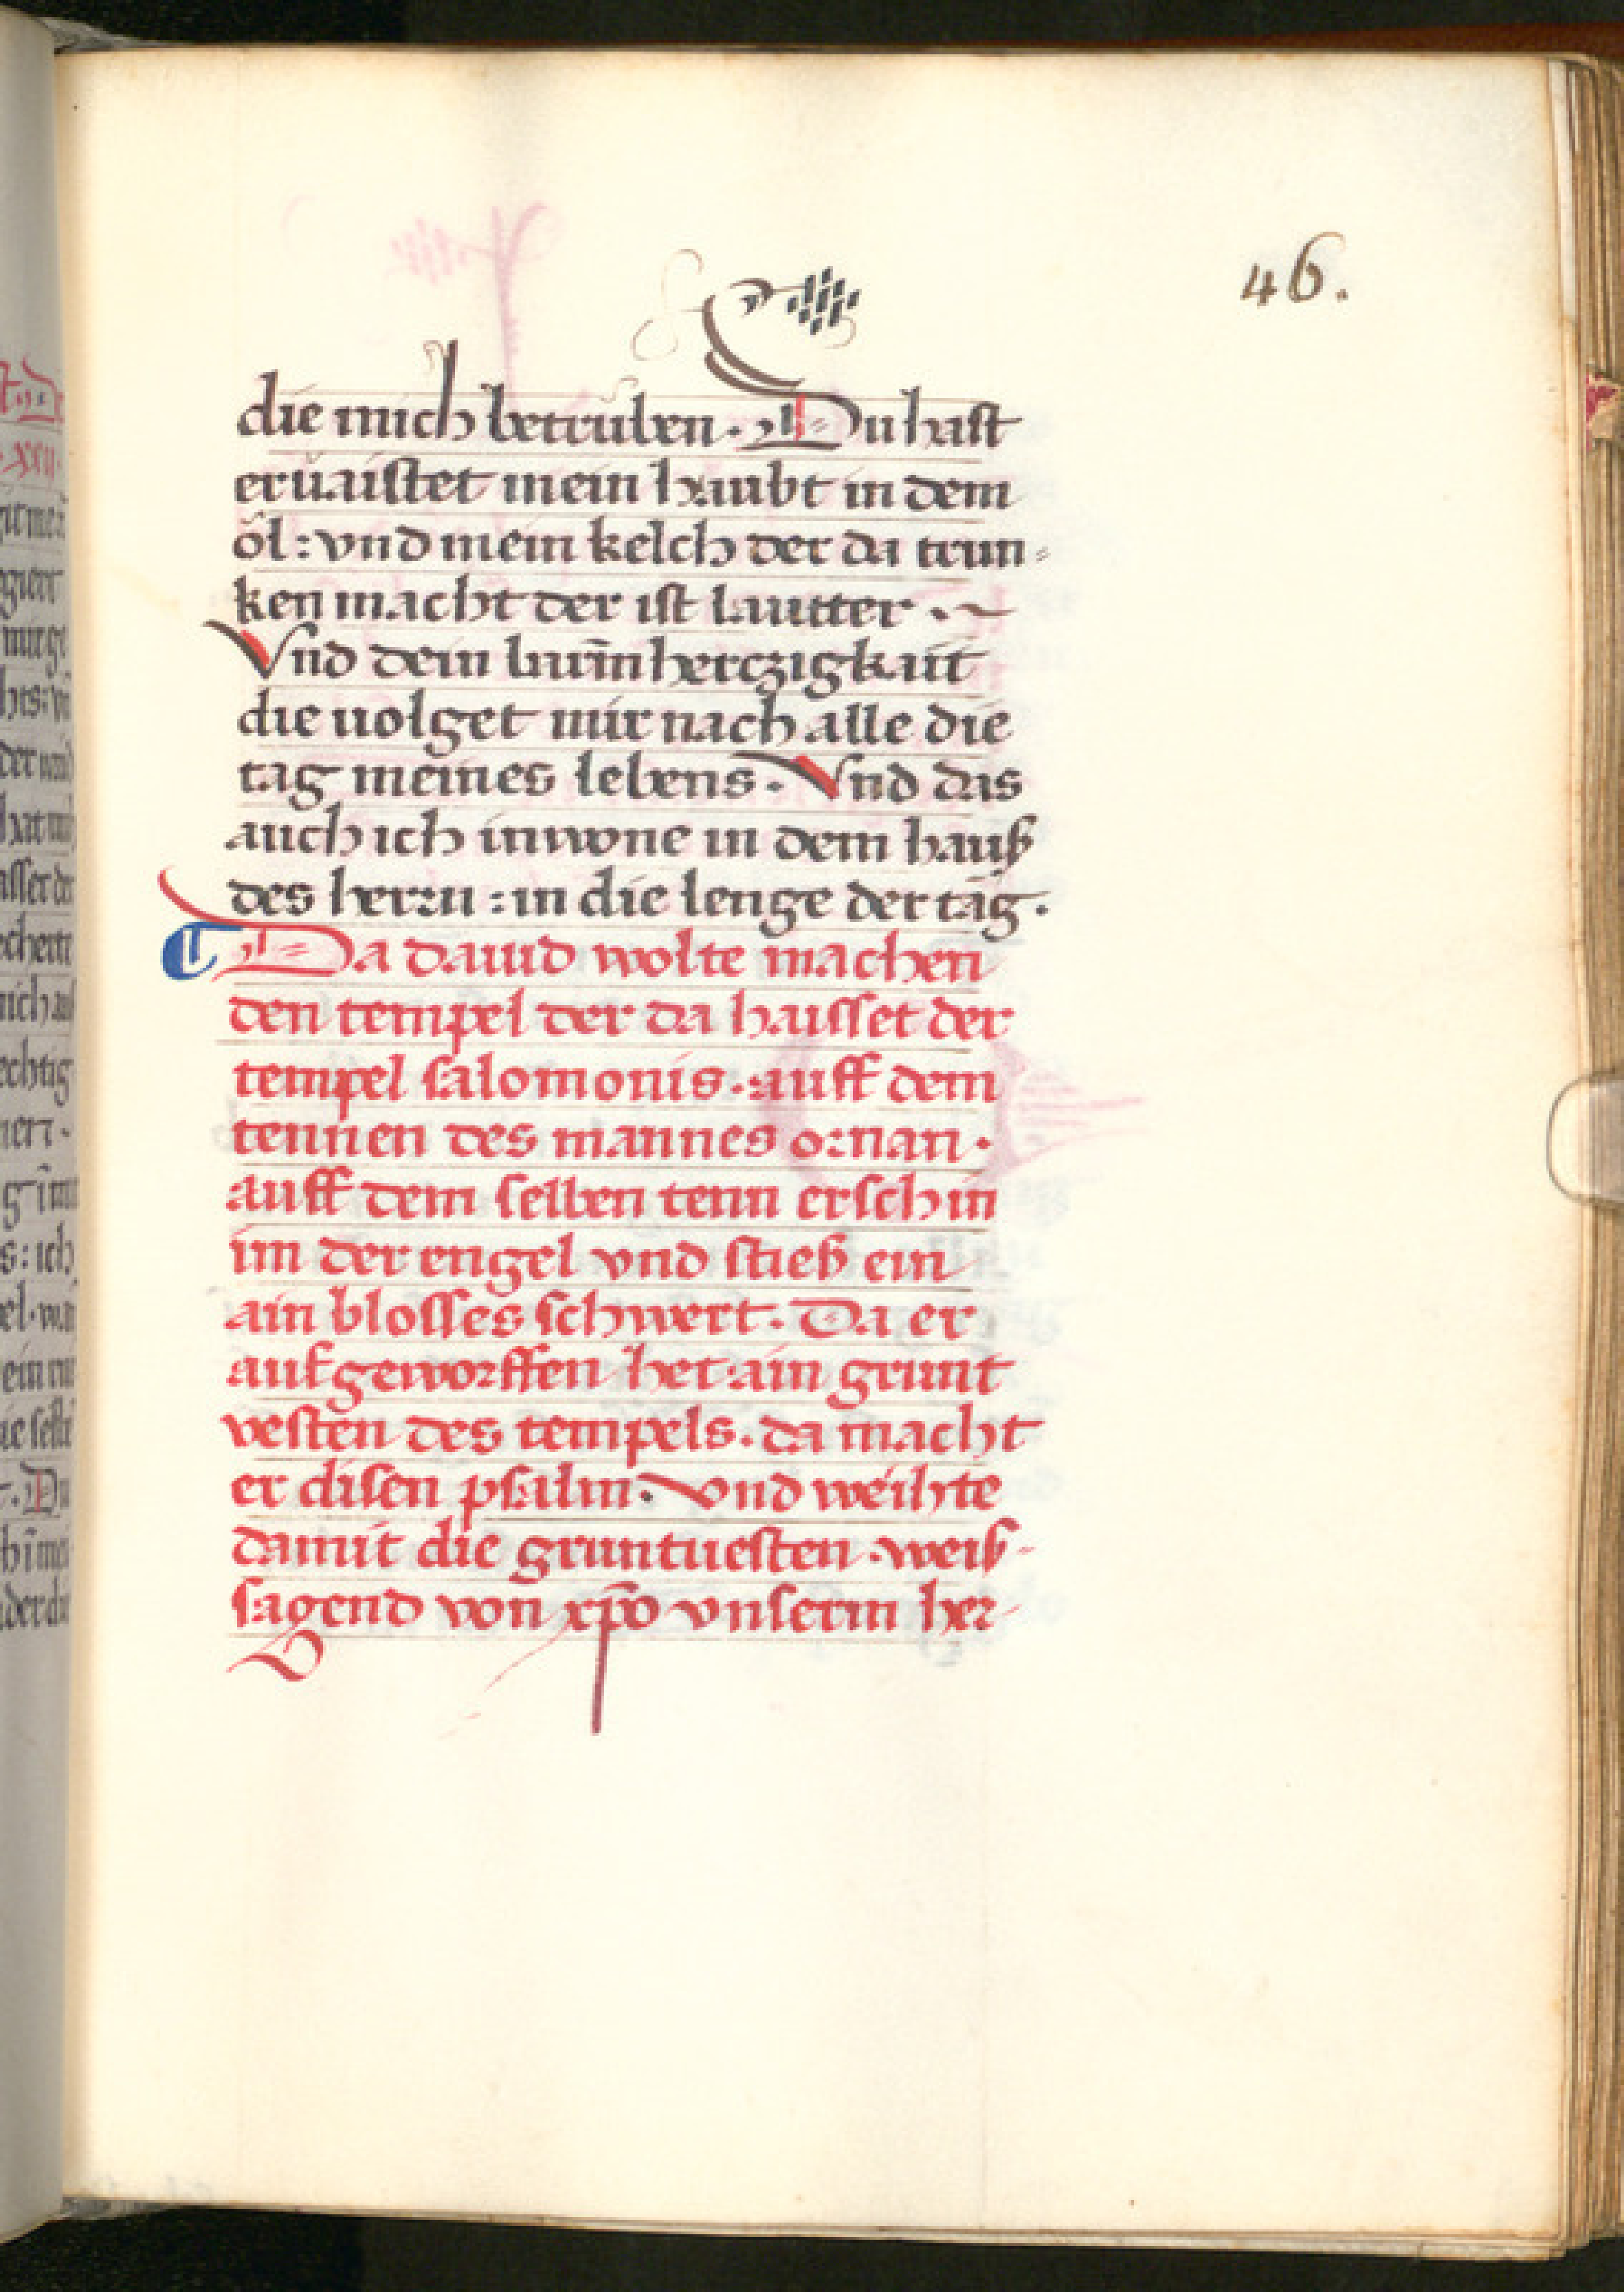 46.
die mich betrůben. Du hast
erűaistet mein haubt in dem
öl: vnd mein kelch der da trun=
ken macht der ist lautter.
Vnd dein barm̄herczigkait
die uolget mir nach alle die
tag meines lebens. Vnd das
auch ich inwone in dem hauß
des herrn: in die lenge der täg.
Da dauid wolte machen
den tempel der da haisset der
tempel salomonis. auff dem
tennen des mannes ornan.
auff dem selben tenn erschin
im der engel vnd stieß ein
ain blosses schwert. Da er
aufgeworffen het ain grunt
vesten des tempels. da macht
er disen psalm. vnd weihte
damit die gruntuesten. weiß-
sagend von xp̄o vnserm her-